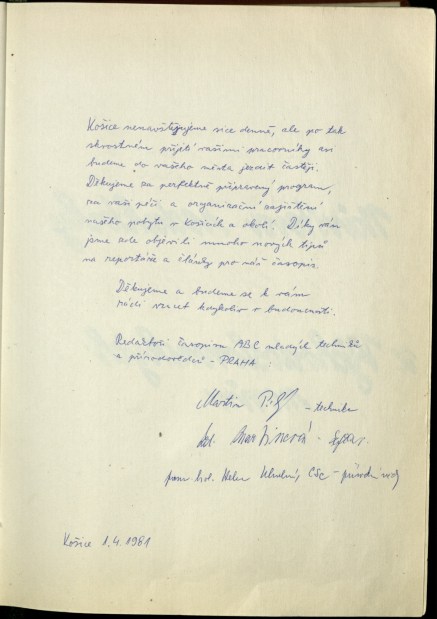 Košice nenavštěvujeme sice denně, ale po tak
skvostném přijetí vašimi pracovníky asi
budeme do vašeho města jezdit častěji.
Děkujeme za perfektně připravený program,
za vaši péči a organizační zajištění
našeho pobytu v Košicích a okolí. Díky vám
jsme zde objevili mnoho nových tipů
na reportáže a články pro náš časopis.
Děkujeme a budeme se k vám
rádi vracet kdykoliv v budoucnosti.
Redaktoři časopisu ABC mladých techniků
a přírodovědců - PRAHA
Martin - technika
CSc - 
Košice 1.4.1981